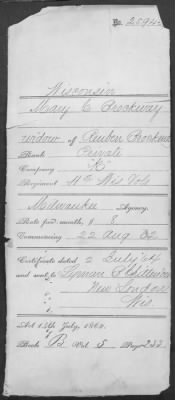 No. 2594
Wisconsin
Mary C Brockway
widow of Reuben Brockway
Rank Private
Company "K"
Regiment 4th Wis Vols
Milwaukee Agency.
Rate per month, $ 8
Commencing 22 Aug 62
Certificate dated 2 July 64
and sent to Lyman
New London
Wis
Act 14th July, 1862.
Book B Vol 5 Page 233